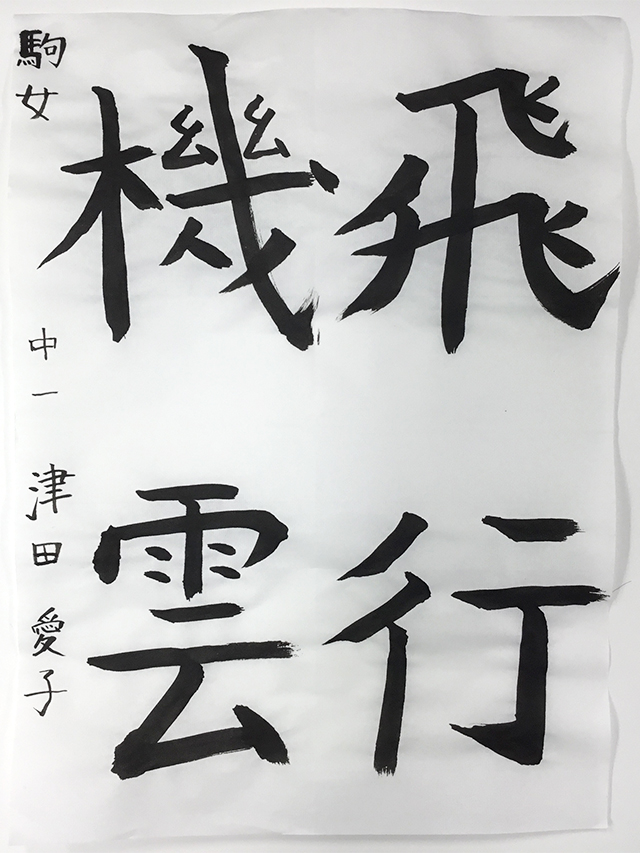 飛行
機雲
駒女 中一 津田愛子